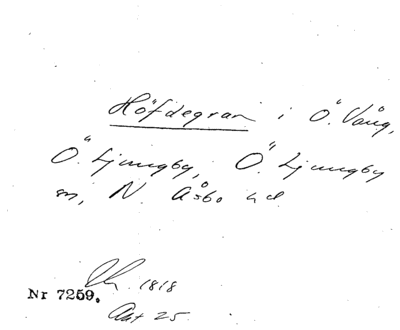 Höfdegran i Ö. Vång,
Ö. Ljungby, Ö. Ljungby
sn, N. Åsbo hd.
1818
Nr 7259.
Akt 25.